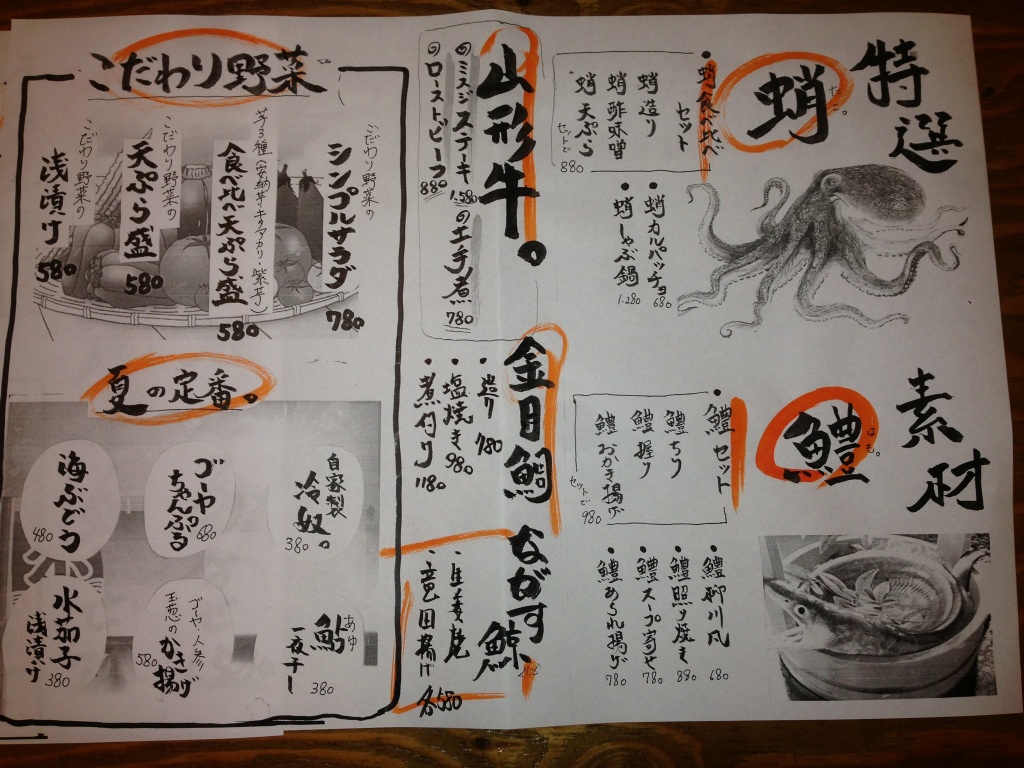 特選
素材
蛸
たこ。
・蛸食べ比べ
セット
蛸造り
蛸酢味噌
蛸天ぷら
セットで
880
・蛸カルパッチョ
680
・蛸しゃぶ鍋
1.280
鱧
はも。
・鱧セット
鱧ちり
鱧握り
鱧おかき揚げ
セットで
980
・鱧柳川風
680
・鱧照り焼き
880
・鱧スープ寄せ
780
・鱧あられ揚げ
780
山形牛。
のミスジステーキ
1.580
のローストビーフ
880
の工手煮
780
金目鯛
・造り
780
・塩焼き
980
・煮付け
1180
ながす鯨
・生姜焼
・竜田揚げ
各580
こだわり野菜
こだわり野菜の
シンプルサラダ
780
芋3種(安納芋・キタアカリ・紫芋)
食べ比べ天ぷら盛
580
こだわり野菜の
天ぷら盛
580
こだわり野菜の
浅漬け
580
夏の定番。
自家製
冷奴。
380
ゴーヤ
ちゃんぷる
680
海ぶどう
480
鮎
あゆ
一夜干し
380
ゴーヤ・人参
玉葱のかき揚げ
580
水茄子
浅漬け
380